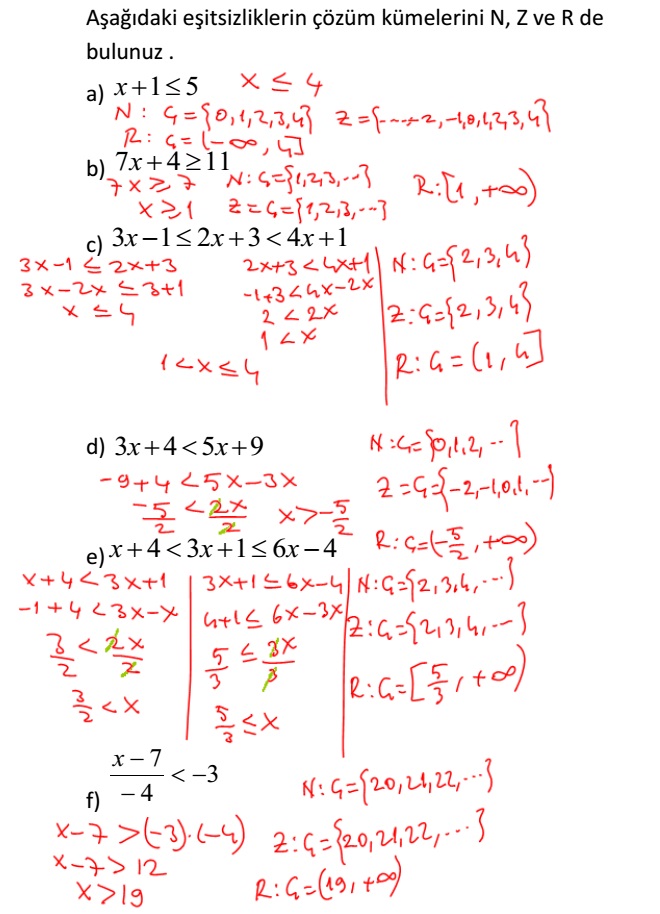 Aşağıdaki eşitsizliklerin çözüm kümelerini N, Z ve R de
bulunuz .
a) x+1≤5 x ≤ 4
N: Ç={0,1,2,3,4} Z={----2,-1,0,1,2,3,4}
R: Ç=(-∞, 4]
b) 7x+4≥11
7x ≥ 7 N: Ç={1,2,3,...} R:[1,+∞)
x ≥ 1 Z=Ç={1,2,3,...}
c) 3x−1≤2x+3<4x+1
3x-1 ≤ 2x+3 2x+3<4x+1 N: Ç={2,3,4}
3x-2x ≤ 3+1 -1+3<4x-2x
x ≤ 4 2 < 2x Z:Ç={2,3,4}
1 < x
1<x≤4 R: Ç=(1,4]
d) 3x+4<5x+9 N:Ç={0,1,2,...}
-9+4 <5x-3x Z=Ç={-2,-1,0,1,...}
-5/2 < 2x/2 x>-5/2
R:Ç=(-5/2,+∞)
e) x+4<3x+1≤6x−4
x+4<3x+1 3x+1≤6x-4 N:Ç={2,3,4,...}
-1+4<3x-x 4+1≤6x-3x Z:Ç={2,3,4,...}
3/2 < 2x/2 5/3 ≤ 3x/3 R:Ç=[5/3,+∞)
3/2 <x 5/3 ≤x
f) x−7/−4 < −3
N:Ç={20,21,22,...}
x-7>(-3).(-4) Z:Ç={20,21,22,...}
x-7>12
x>19 R:Ç=(19,+∞)